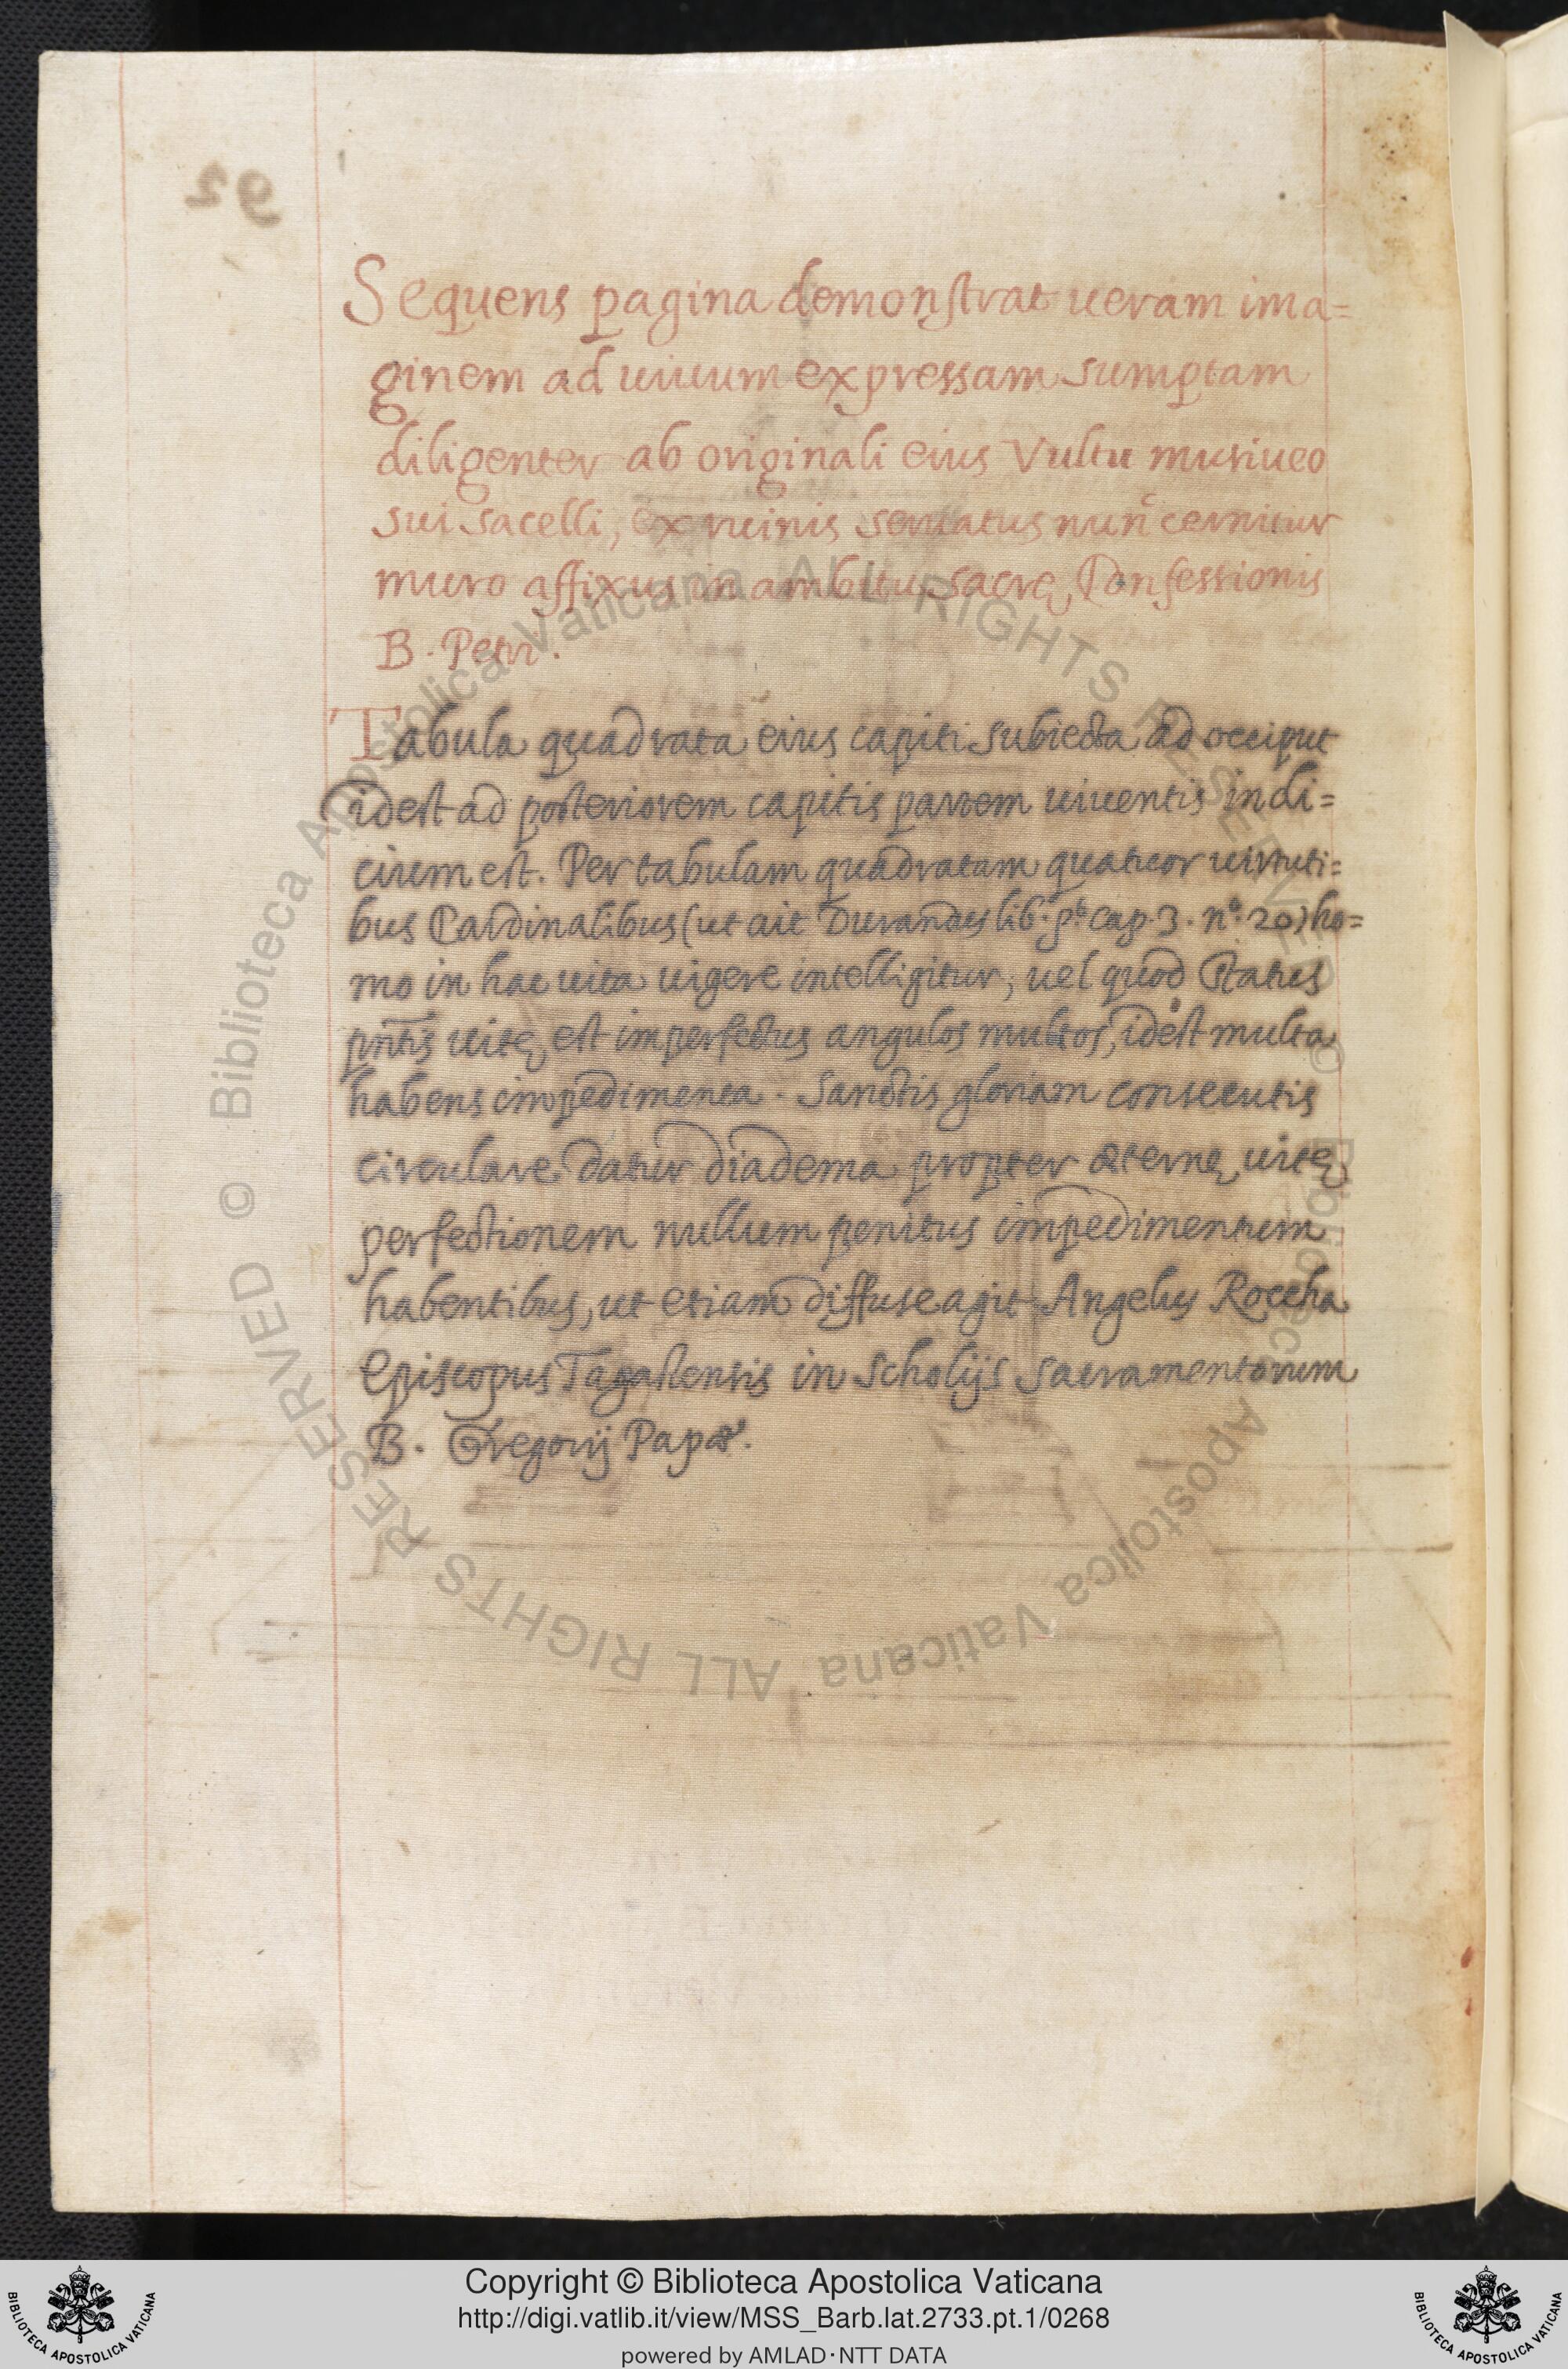 92
Sequens pagina demonstrat ueram ima=
ginem ad uiuum expressam sumptam
diligenter ab originali eius Vultu musiueo
sui sacelli, ex ruinis seruatus nunc cernitur
muro affixus in ambitu sacrę Confessionis
B. Petri.
Tabula quadrata eius capiti subiecta ad occiput
idest ad posteriorem capitis partem uiuentis indi=
cium est. Per tabulam quadratam quatuor uirtuti=
bus Cardinalibus (ut ait Durandus lib. po. cap. 3. no. 20) ho=
mo in hac uita uigere intelligitur, uel quod status
pñtis uitę est imperfectus angulos multos, idest multa
habens impedimenta. Sanctis gloriam consecutis
circulare datur diadema propter æternę uitę
perfectionem nullum penitus impedimentum
habentibus, ut etiam diffuse agit Angelus Roccha
Episcopus Tagastensis in Scholijs Sacramentorum
B. Gregorij Papæ.
© Biblioteca Apostolica Vaticana ALL RIGHTS RESERVED © Biblioteca Apostolica Vaticana ALL RIGHTS RESERVED
Copyright © Biblioteca Apostolica Vaticana
http://digi.vatlib.it/view/MSS_Barb.lat.2733.pt.1/0268
powered by AMLAD·NTT DATA
BIBLIOTECA APOSTOLICA VATICANA
BIBLIOTECA APOSTOLICA VATICANA